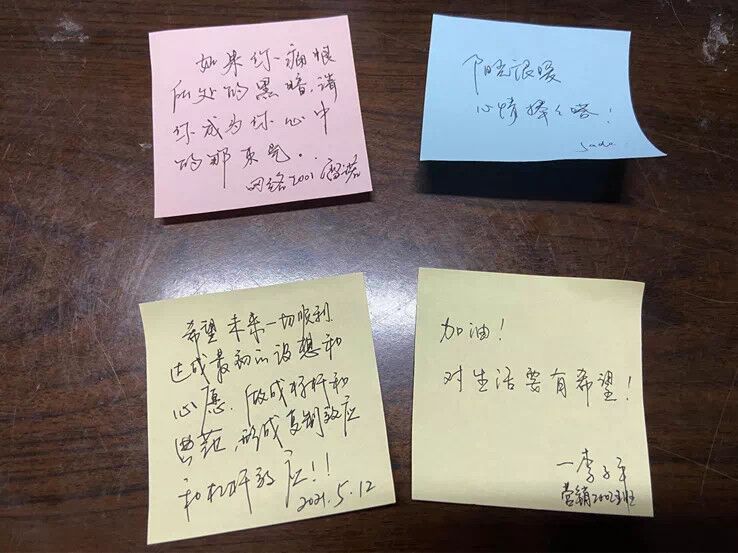 如果你痛恨
所处的黑暗,请
你成为你心中
的那束光..
网络2001
阳光很暖
心情棒棒哒!
希望未来一切顺利
达成最初的设想和
心愿.做成标杆和
典范,形成复制效应
和杠杆效应!!
2021.5.12
加油!
对生活要有希望!
一李子年
营销2002班